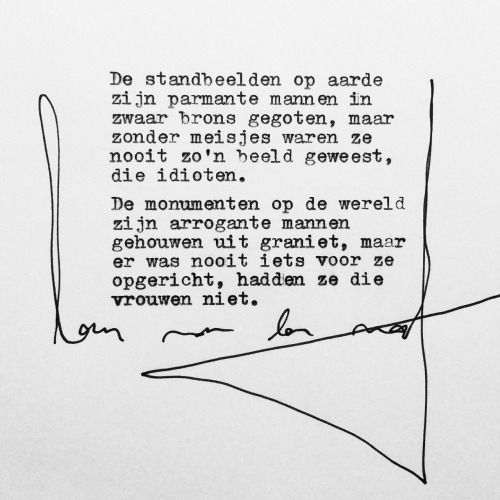 De standbeelden op aarde
zijn parmante mannen in
zwaar brons gegoten, maar
zonder meisjes waren ze
nooit zo'n beeld geweest,
die idioten.
De monumenten op de wereld
zijn arrogante mannen
gehouwen uit graniet, maar
er was nooit iets voor ze
opgericht, hadden ze die
vrouwen niet.